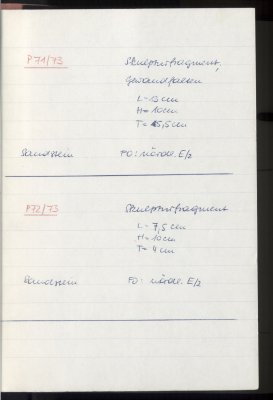 P71/73 Skulpturfragment,
Gewandfalten
L= 13 cm
H= 10 cm
T= 5,5 cm
Sandstein FO: nördl. E/2
P72/73 Skulpturfragment
L= 7,5 cm
H= 10 cm
T= 4 cm
Sandstein FO: nördl. E/2